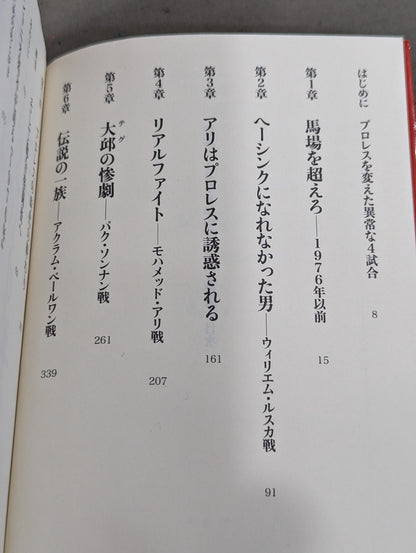 はじめに プロレスを変えた異常な4試合 8
第1章 馬場を超えろ——1976年以前 15
第2章 ヘーシンクになれなかった男——ウィリエム・ルスカ戦 91
第3章 アリはプロレスに誘惑される 161
第4章 リアルファイト——モハメッド・アリ戦 207
第5章 大邱の惨劇——パク・ソンナン戦 261
テグ
第6章 伝説の一族——アクラム・ペールワン戦 339